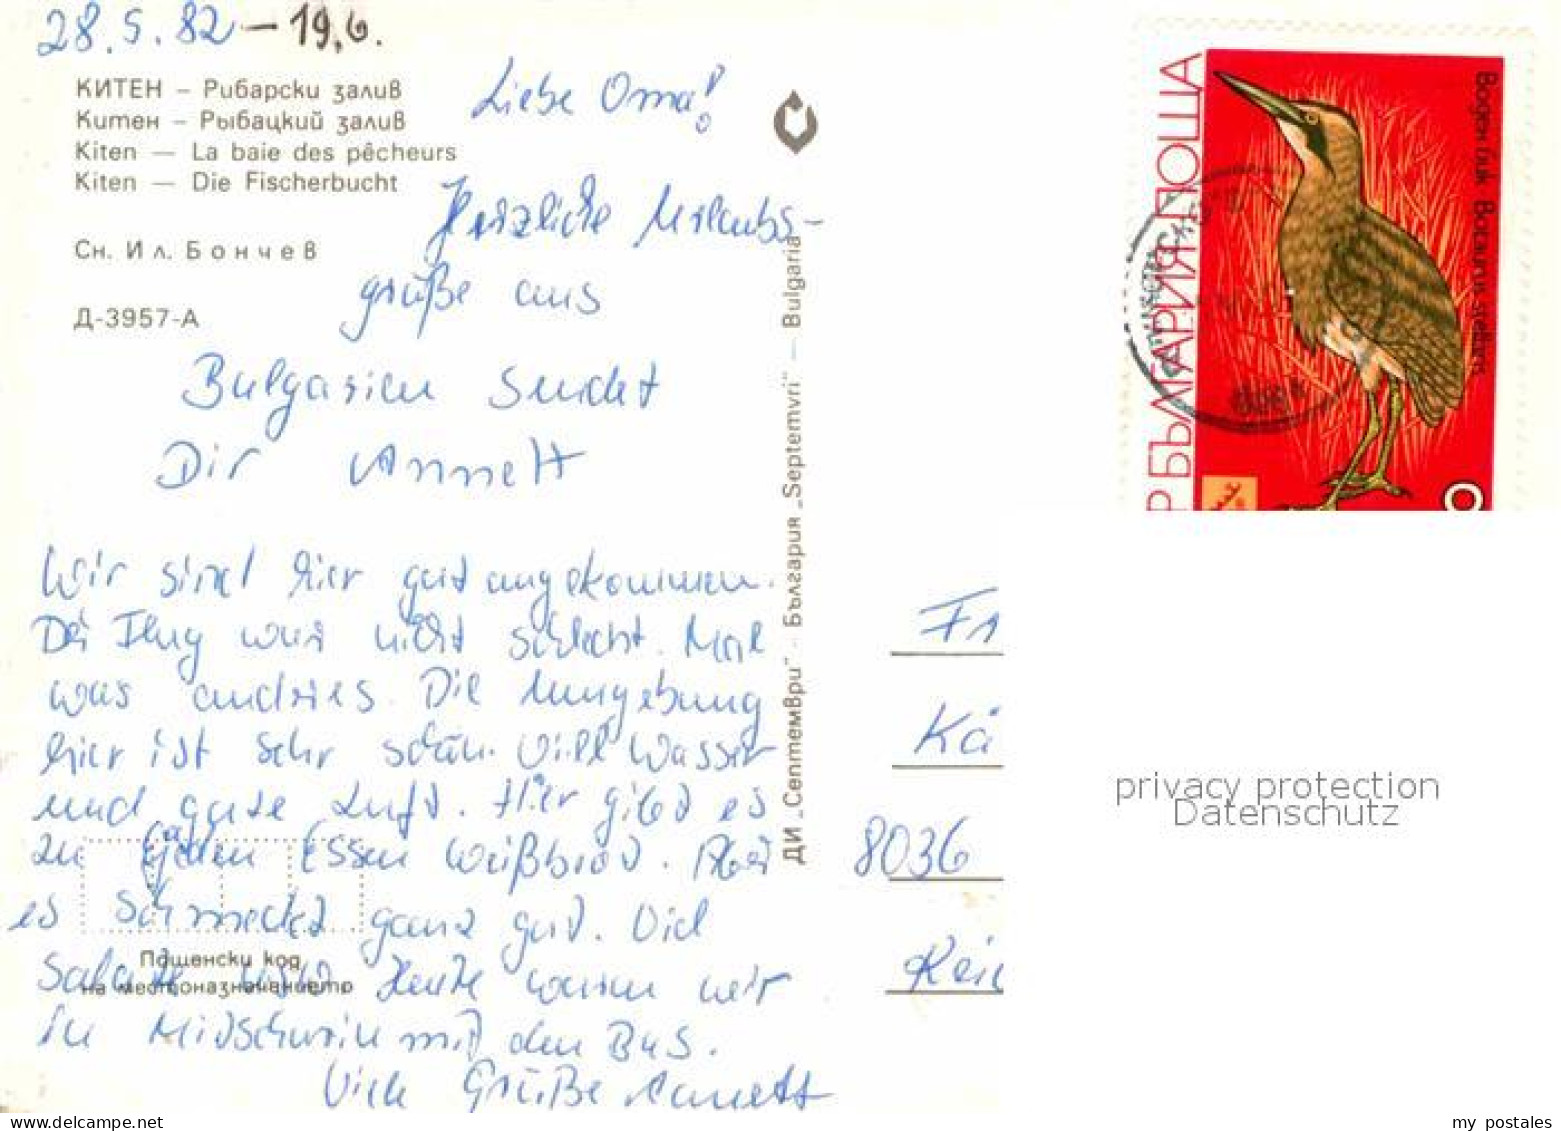 28.5.82 – 19.6.
КИТЕН – Рибарски залив
Китен – Рыбацкий залив
Kiten — La baie des pêcheurs
Kiten — Die Fischerbucht
Сн. Ил. Бончев
Д-3957-А
Liebe Oma!
Herzliche Urlaubs-
grüße aus
Bulgarien sendet
Dir Annett
Wir sind hier gut angekommen.
Der Flug war nicht schlecht. Mal
was andres. Die Umgebung
hier ist sehr schön. Viel Wasser
und gute Luft. Hier gibt es
zu jeden Essen Weißbrot. Aber
es schmeckt ganz gut. Viel
Salate
Heute waren wir
in
mit den Bus.
Viele Grüße Annett
Пощенски код
на местоназначението
ДИ „Септември" - България „Septemvri" — Bulgaria
БЪЛГАРИЯ ПОЩА
Воден бик Botaurus stellaris
Fr
Kä
8036
privacy protection
Datenschutz
my postales